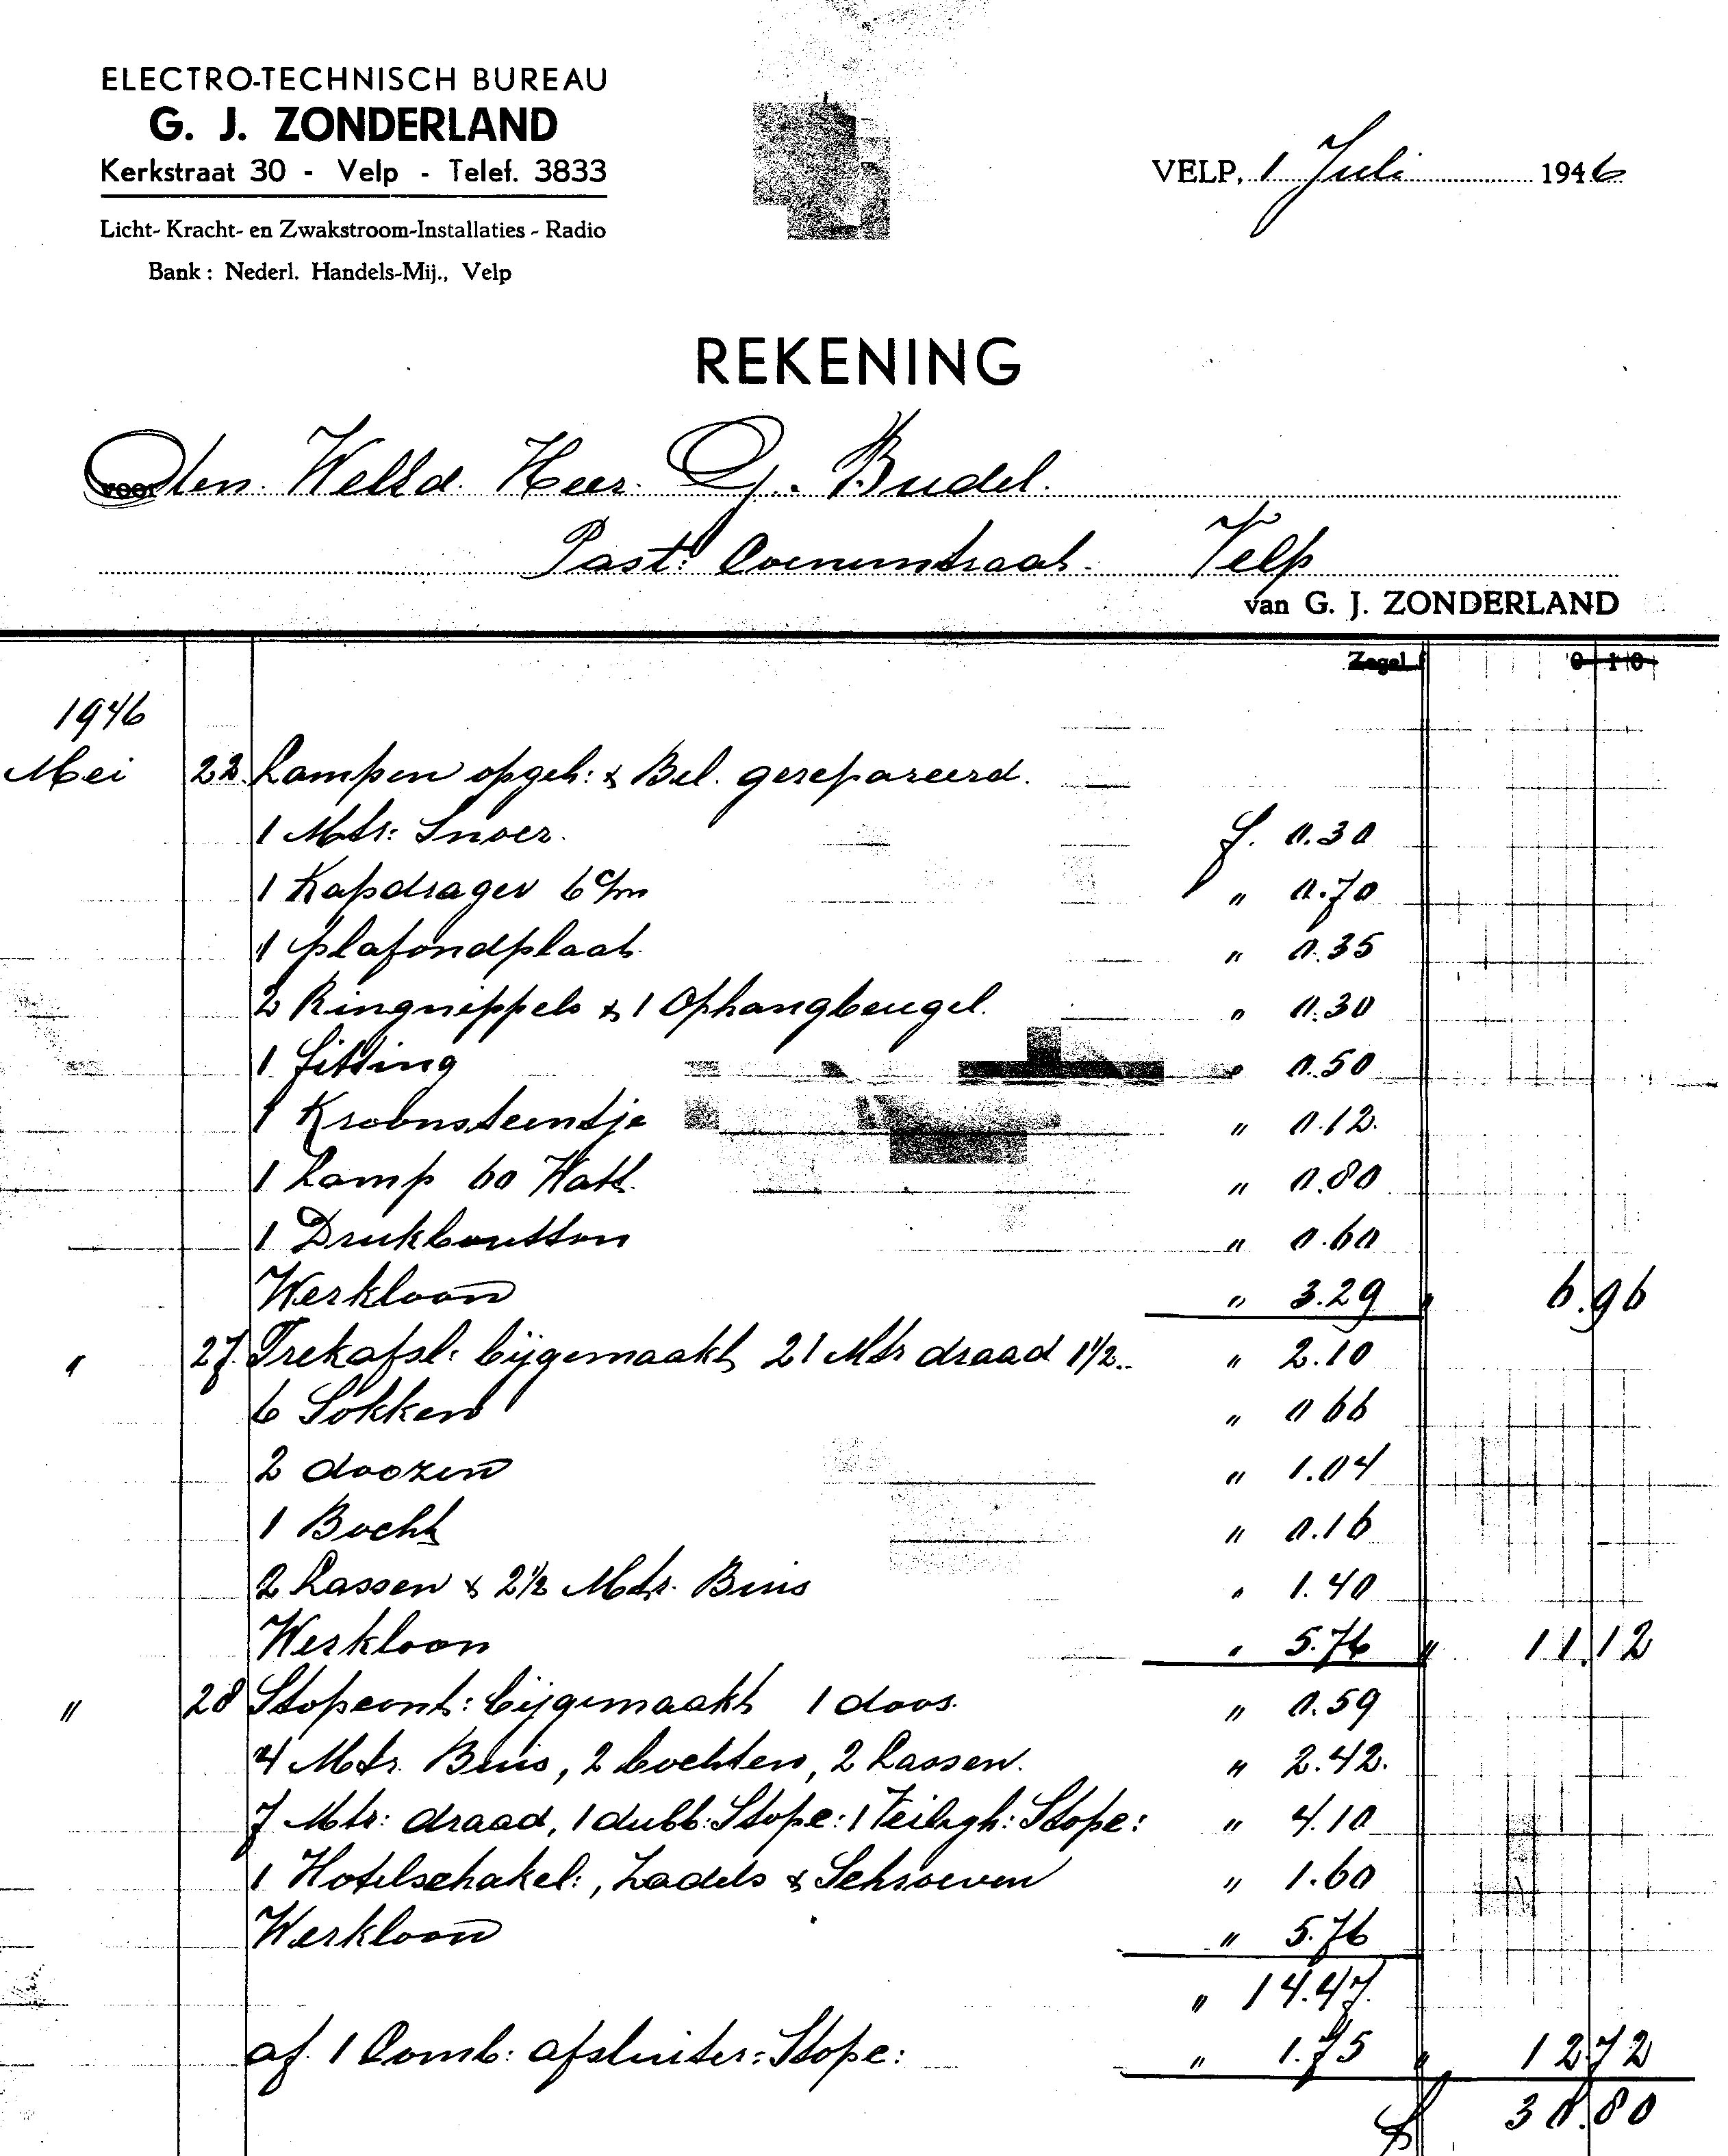 ELECTRO-TECHNISCH BUREAU
G. J. ZONDERLAND
Kerkstraat 30 - Velp - Telef. 3833
Licht- Kracht- en Zwakstroom-Installaties - Radio
Bank: Nederl. Handels-Mij., Velp
VELP, 1 Juli 1946
REKENING
voor den Heer G. Budel.
Past: Velp
van G. J. ZONDERLAND
Zegel f 0 10
1946
Mei 22 Lampen opgeh: & Bel. gerepareerd.
1 Mtr: Snoer. f. 0.30
1 Kapdrager 6 c/m " 0.70
1 plafondplaat " 0.35
2 Ringnippels & 1 Ophangbeugel. " 0.30
1 fitting " 0.50
1 Kroonsteentje " 0.12.
1 Lamp 60 Watt. " 0.80
1 Drukboutton " 0.60
Werkloon " 3.29 " 6.96
" 27. Trekafsl: bijgemaakt 21 Mtr draad 1½.. " 2.10
6 Sokken " 0 66
2 doozen " 1.04
1 Bocht " 0.16
2 Lassen & 2½ Mtr. Buis " 1.40
Werkloon " 5.76 " 11.12
" 28 Stopcont: bijgemaakt 1 doos. " 0.59
4 Mtr. Buis, 2 bochten, 2 Lassen. " 2.42.
7 Mtr: draad, 1 dubb: Stopc: 1 Veiligh: Stopc: " 4.10
1 Hotelschakel:, Zadels & Schroeven " 1.60
Werkloon " 5.76
" 14.47.
af. 1 Comb: afsluiter: Stopc: " 1.75 " 12.72
f 30.80